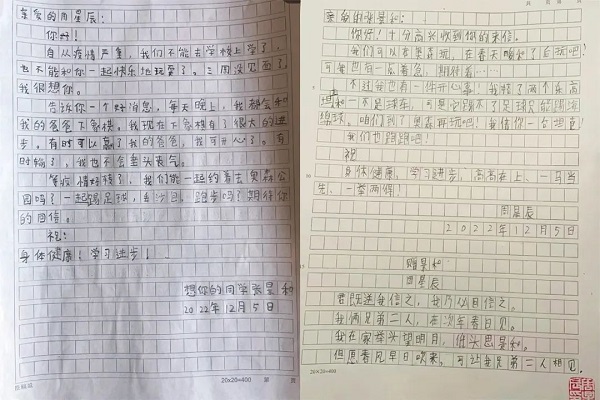 亲爱的周星辰:
你好!
自从疫情严重,我们不能去学校上学了,
也不能和你一起快乐地玩耍了。三周没见面了,
我很想你。
告诉你一个好消息,每天晚上,我都会和
我的爸爸下象棋。我现在下象棋有了很大的进
步,有时可以赢了我的爸爸,我可开心了。有
时输了,我也不会垂头丧气。
等疫情好转了,我们能一起约着去奥森公
园吗?一起踢足球,去沙园,跑步吗?期待你
的回信。
祝:
身体健康!学习进步!
想你的同学张景和
2022年12月5日
20×20=400
亲爱的张景和:
你好!十分高兴收到你的来信。
我们可以去奥森玩,在春天暖和了去玩吧!
不过我也有一件开心事!我搭了两个乐高
坦和一个足球车,可是它踢不了足球只能踢
棉球,咱们到了奥森再玩吧!我借你一台坦克!
我们也跑跑吧!
祝
身体健康,学习进步,高高在上、一马当
先、一举两得!
周星辰
2022年12月5日
赠景和
周星辰
君既送我信之,我乃以目信之。
我俩足第二人,在沙车春日见。
我在家举头望明月,低头思景和。
但愿春风早日吹来,可让我足第二人相见。
20×20=400